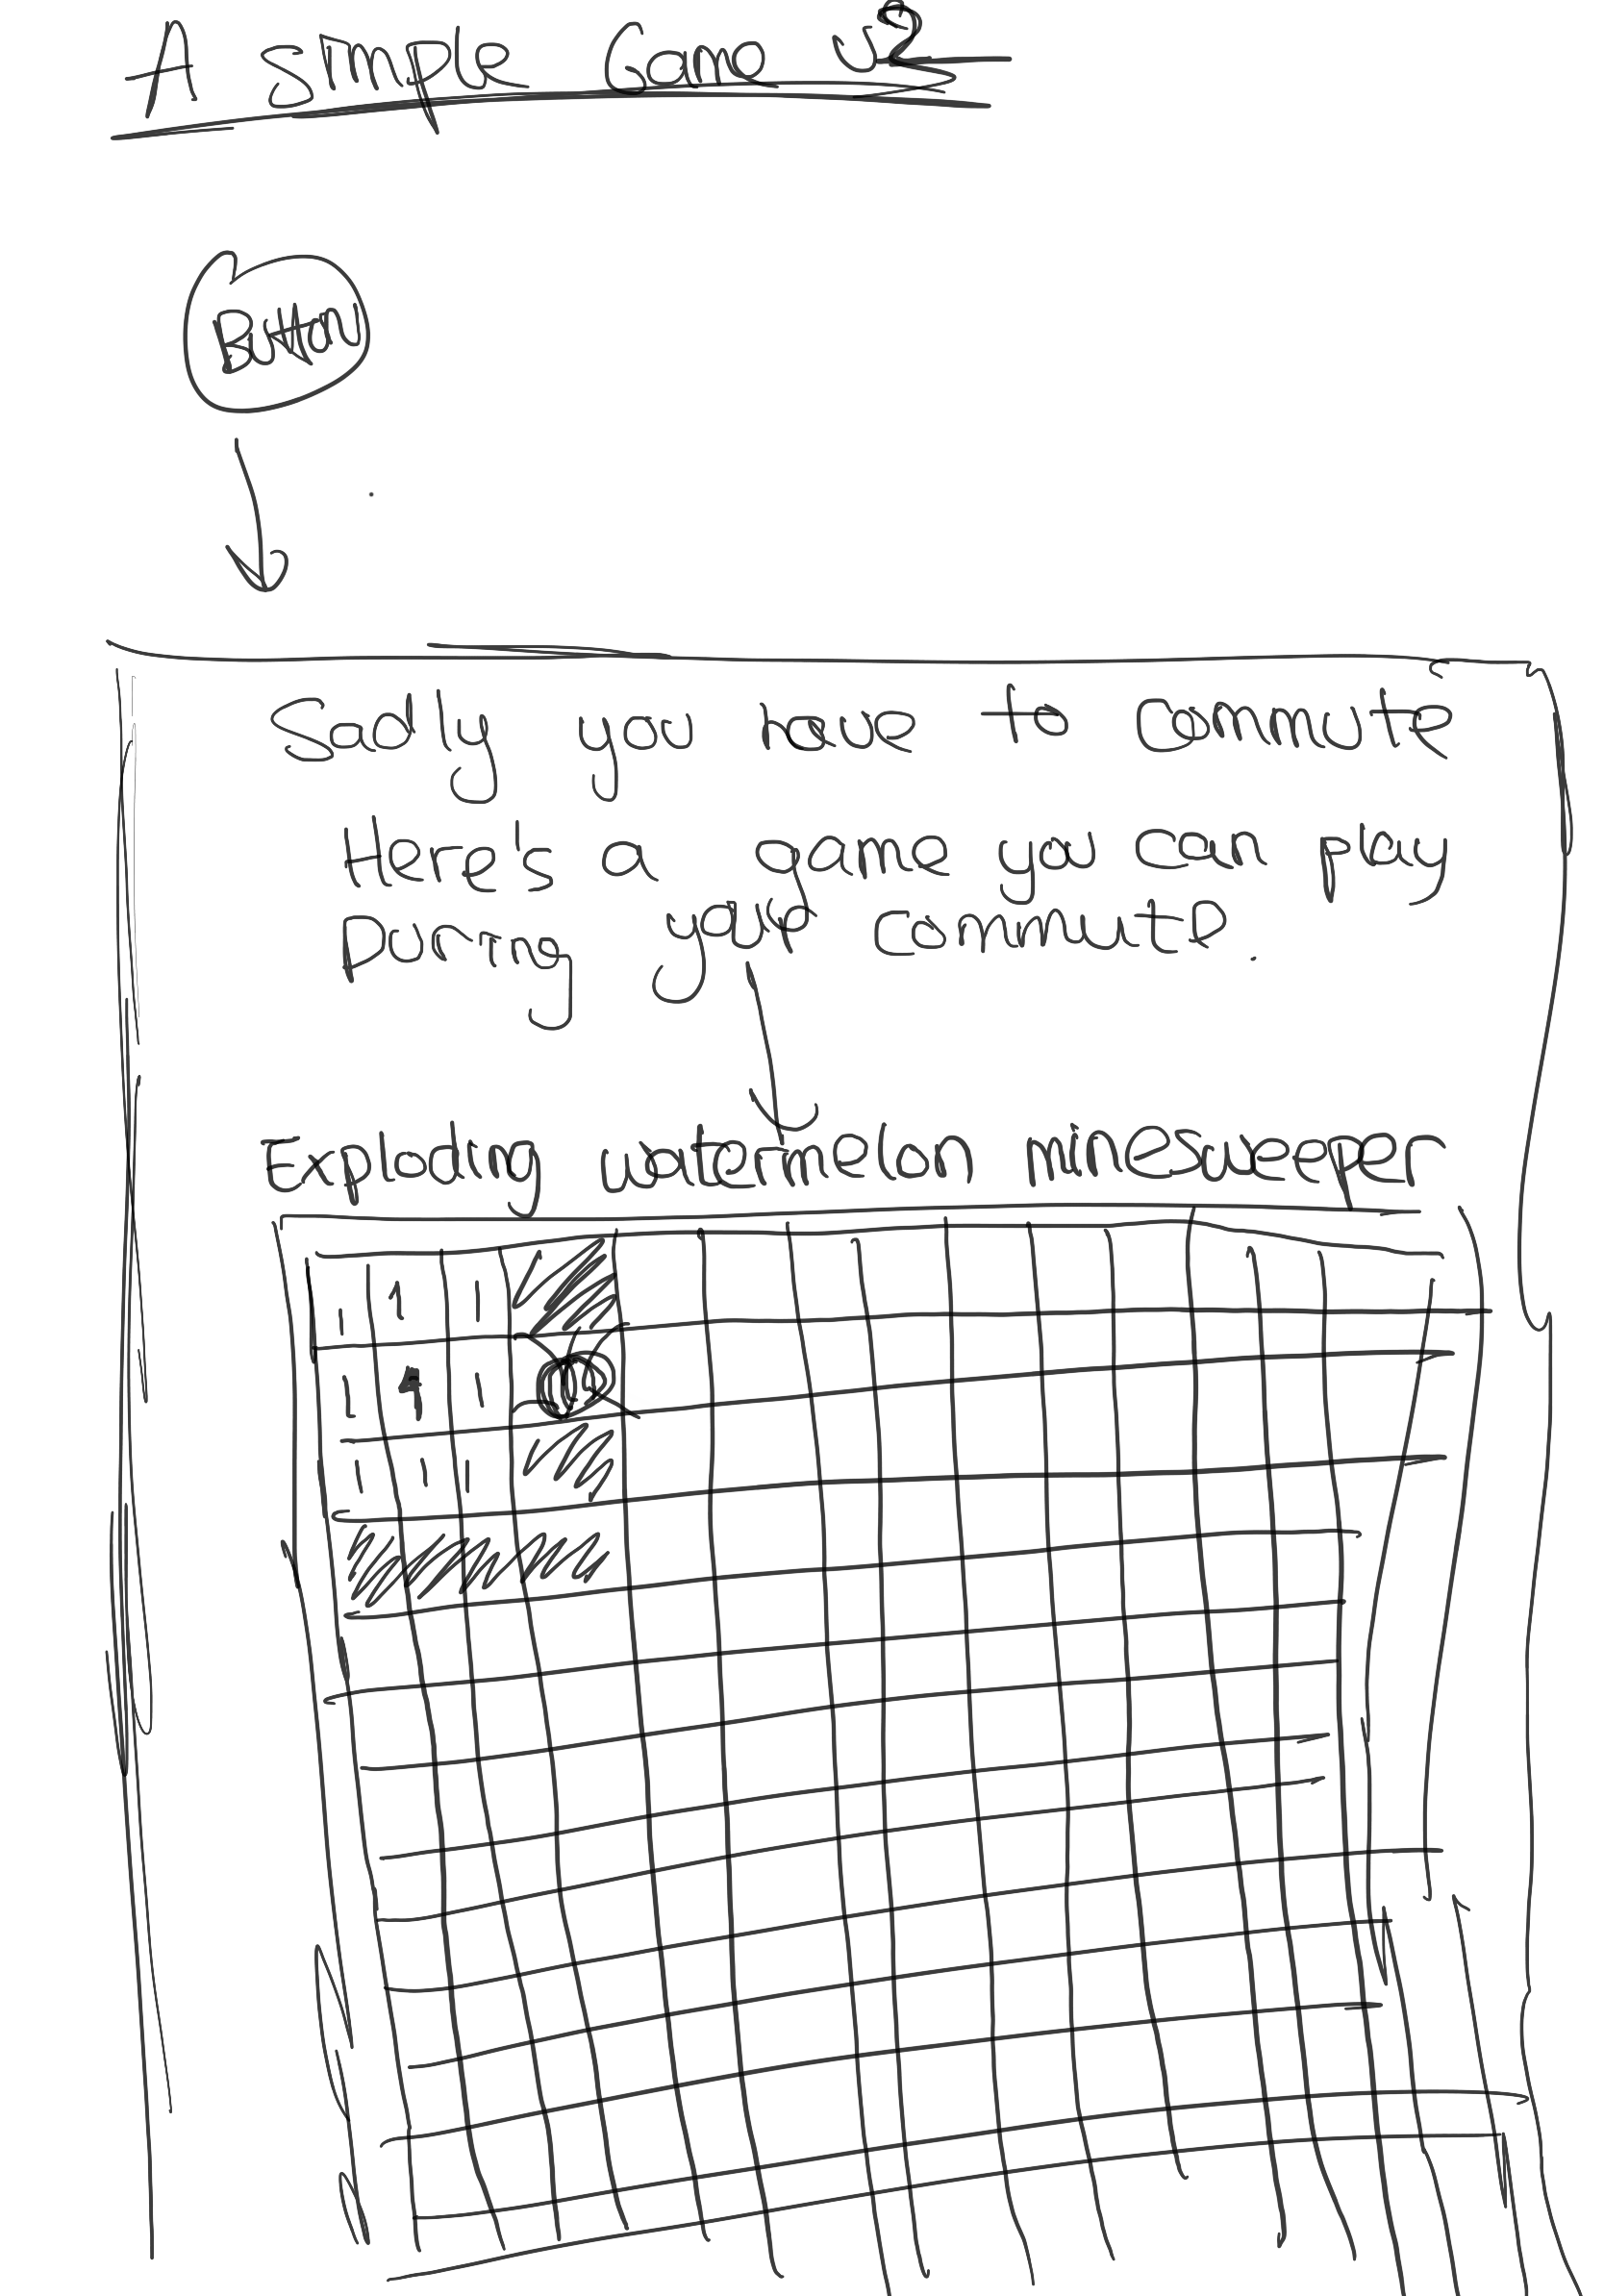 A simple Game v2
Button
Sadly you have to commute
Here's a game you can play
During your commute.
Exploding watermelon minesweeper
1 1 1
1 1 1
1 1 1